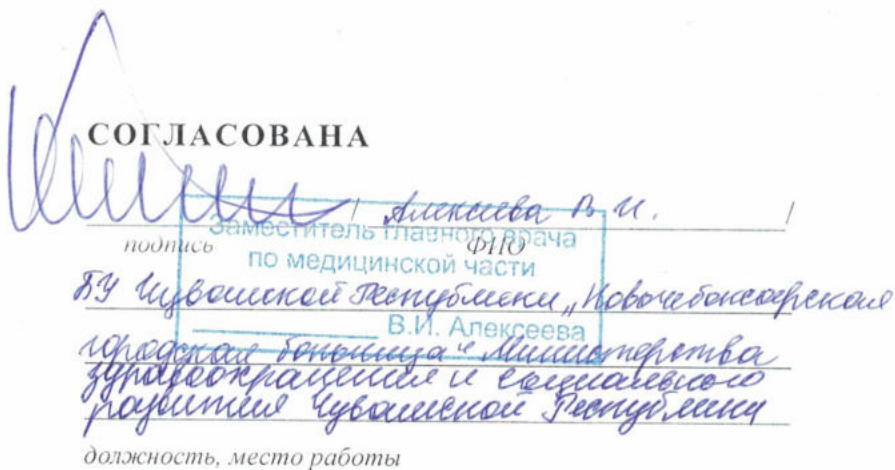 СОГЛАСОВАНА
/ Алексеева В. И. /
подпись ФИО
Заместитель главного врача
по медицинской части
БУ Чувашской Республики „Новочебоксарская
В.И. Алексеева
городская больница" Министерства
здравоохранения и социального
развития Чувашской Республики
должность, место работы